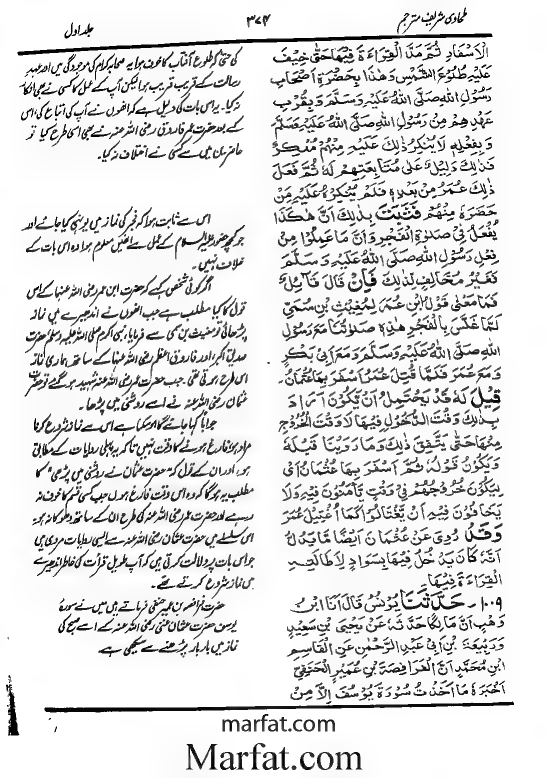 طحاوی شریف مترجم
۳۷۴
جلد اول
الْاَسْفَارِ ثُمَّ مَدَّ الْقِرَاءَةَ فِيْهَا حَتّٰى خِيْفَ
عَلَيْهِ طُلُوْعُ الشَّمْسِ وَهٰذَا بِحَضْرَةِ اَصْحَابِ
رَسُوْلِ اللّٰهِ صَلَّى اللّٰهُ عَلَيْهِ وَسَلَّمَ وَبِقُرْبِ
عَهْدِهِمْ مِنْ رَسُوْلِ اللّٰهِ صَلَّى اللّٰهُ عَلَيْهِ وَسَلَّمَ
وَبِفِعْلِهٖ لَا يُنْكِرُ ذٰلِكَ عَلَيْهِ مِنْهُمْ مُنْكِرٌ
فَذٰلِكَ دَلِيْلٌ عَلٰى مُتَابَعَتِهِمْ لَهٗ ثُمَّ فَعَلَ
ذٰلِكَ عُمَرُ مِنْ بَعْدِهٖ فَلَمْ يُنْكِرْهُ عَلَيْهِ مَنْ
حَضَرَهٗ مِنْهُمْ فَثَبَتَ بِذٰلِكَ اَنَّ هٰكَذَا
يُفْعَلُ فِيْ صَلٰوةِ الْفَجْرِ وَاَنَّ مَا عَلِمُوْا مِنْ
فِعْلِ رَسُوْلِ اللّٰهِ صَلَّى اللّٰهُ عَلَيْهِ وَسَلَّمَ
فَغَيْرُ مُخَالِفٍ لِذٰلِكَ فَاِنْ قَالَ قَائِلٌ
فَمَا مَعْنٰى قَوْلِ ابْنِ عُمَرَ لِمُغِيْثِ بْنِ سُمَيٍّ
لَمَّا غَلَّسَ بِالْفَجْرِ هٰذِهٖ صَلٰوتُنَا مَعَ رَسُوْلِ
اللّٰهِ صَلَّى اللّٰهُ عَلَيْهِ وَسَلَّمَ وَمَعَ اَبِيْ بَكْرٍ
وَمَعَ عُمَرَ فَلَمَّا قُتِلَ عُمَرُ اَسْفَرَ بِهَا عُثْمَانُ۔
قِيْلَ لَهٗ قَدْ يَحْتَمِلُ اَنْ يَّكُوْنَ اَرَادَ
بِذٰلِكَ وَقْتَ الدُّخُوْلِ فِيْهَا لَا وَقْتَ الْخُرُوْجِ
مِنْهَا حَتّٰى يَتَّفِقَ ذٰلِكَ وَمَا رَوَيْنَا قَبْلَهٗ
وَيَكُوْنُ قَوْلُهٗ ثُمَّ اَسْفَرَ بِهَا عُثْمَانُ اَيْ
لِيَكُوْنَ خُرُوْجُهُمْ فِيْ وَقْتٍ يَاْمَنُوْنَ فِيْهِ وَلَا
يَخَافُوْنَ فِيْهِ اَنْ يُّغْتَالُوْا كَمَا اُغْتِيْلَ عُمَرُ
وَقَدْ رُوِيَ عَنْ عُثْمَانَ اَيْضًا مَّا يَدُلُّ
اَنَّهٗ كَانَ يَدْخُلُ فِيْهَا بِسَوَادٍ لِاِطَالَتِهِ
الْقِرَاءَةَ فِيْهَا۔
۱۰۰۹- حَدَّثَنَا يُوْنُسُ قَالَ اَنَا ابْنُ
وَهْبٍ اَنَّ مَالِكًا حَدَّثَهٗ عَنْ يَحْيَى بْنِ سَعِيْدٍ
وَرَبِيْعَةَ بْنِ اَبِيْ عَبْدِ الرَّحْمٰنِ عَنِ الْقَاسِمِ
ابْنِ مُحَمَّدٍ اَنَّ الْفَرَافِصَةَ بْنَ عُمَيْرٍ الْحَنَفِيَّ
اَخْبَرَهٗ مَا اَخَذْتُ سُوْرَةَ يُوْسُفَ اِلَّا مِنْ
کی حتیٰ کہ طلوع آفتاب کا خوف ہوا یہ صحابہ کرام کی موجودگی میں اور عہد
رسالت کے قریب قریب ہوا لیکن آپ کے عمل کا کسی نے بھی انکار
نہ کیا۔ یہ اس بات کی دلیل ہے کہ انھوں نے آپ کی اتباع کی، اس
کے بعد حضرت عمر فاروق رضی اللہ عنہ نے بھی اسی طرح کیا تو
حاضرین میں سے کسی نے اختلاف نہ کیا۔
اس سے ثابت ہوا کہ فجر کی نماز میں یونہی کیا جائے اور
جو کچھ حضور علیہ السلام کے عمل سے انھیں معلوم ہوا وہ اس بات کے
خلاف نہیں۔
اگر کوئی شخص کہے کہ حضرت ابن عمر رضی اللہ عنہما کے اس
قول کا کیا مطلب ہے جب انھوں نے اندھیرے میں نماز
پڑھائی تو مغیث بن سمی سے فرمایا، نبی اکرم صلی اللہ علیہ وسلم، حضرت
صدیق اکبر، اور فاروق اعظم رضی اللہ عنہما کے ساتھ ہماری نماز
اس طرح ہوتی تھی۔ جب حضرت عمر رضی اللہ عنہ شہید ہو گئے تو حضرت
عثمان رضی اللہ عنہ نے اسے روشنی میں پڑھا۔
جواباً کہا جائے گا ہو سکتا ہے اس سے نماز شروع کرنا
مراد ہو، فارغ ہونے کا وقت نہیں تاکہ یہ پہلی روایات کے مطابق
ہو، اور ان کے قول کہ "حضرت عثمان نے روشنی میں پڑھی" کا
مطلب یہ ہوگا کہ وہ اس وقت فارغ ہوں جب کسی قسم کا خوف نہ
رہے اور حضرت عمر رضی اللہ عنہ کی طرح ان کے ساتھ دھوکا نہ ہو
اس سلسلے میں حضرت عثمان رضی اللہ عنہ سے ایسی روایات مروی ہیں
جو اس بات پر دلالت کرتی ہیں کہ آپ طویل قرأت کی خاطر اندھیرے
ہی نماز شروع کرتے تھے۔
حضرت فرافصہ بن عمیر حنفی فرماتے ہیں میں نے سورۂ
یوسف حضرت عثمان غنی رضی اللہ عنہ کے اسے صبح کی
نماز میں بار بار پڑھنے سے سیکھی ہے
marfat.com
Marfat.com